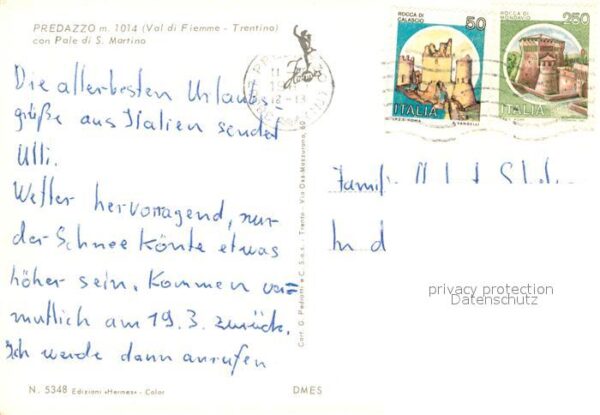 PREDAZZO m. 1014 (Val di Fiemme - Trentino)
con Pale di S. Martino
Die allerbesten Urlaubs-
grüße aus Italien sendet
Ulli.
Wetter hervorragend, nur
der Schnee könte etwas
höher sein. Kommen ver=
mutlich am 19.3. zurück.
Ich werde dann anrufen
N. 5348 Edizioni «Hermes» - Color
DMES
Cart. G. Pedrotti e C. S.a.s. - Trento - Via Oss-Mazzurana, 60
ROCCA DI
CALASCIO
50
ITALIA
I.P.Z.S. ROMA
ROCCA DI
MONDAVIO
250
ITALIA
Familie
privacy protection
Datenschutz